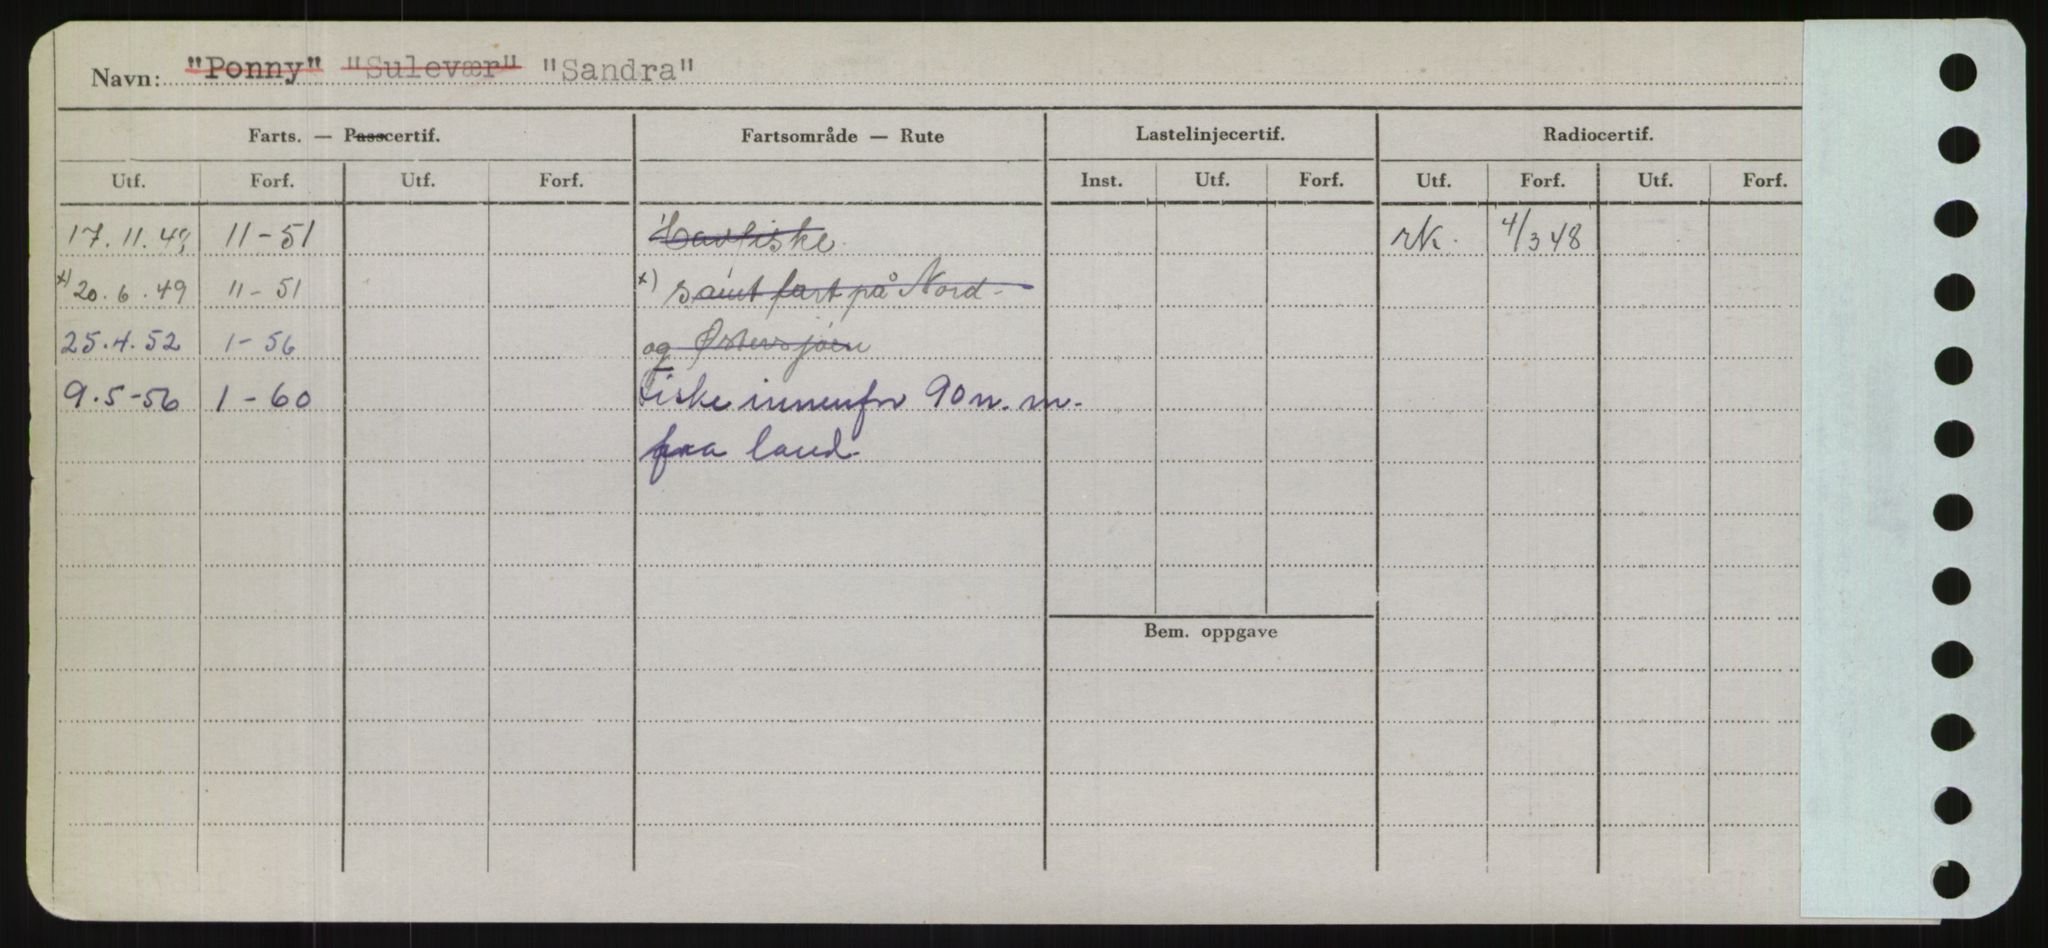 Navn: "Ponny" "Sulevær" "Sandra"
Farts. — Passcertif. Fartsområde — Rute Lastelinjecertif. Radiocertif.
Utf. Forf. Utf. Forf. Inst. Utf. Forf. Utf. Forf. Utf. Forf.
17.11.48 11-51 Havfiske rk. 4/3 48
x) 20.6.49 11-51 x) samt fart på Nord-
25.4.52 1-56 og Østersjøen
9.5-56 1-60 Fiske innenfor 90 n.m.
fra land
Bem. oppgave